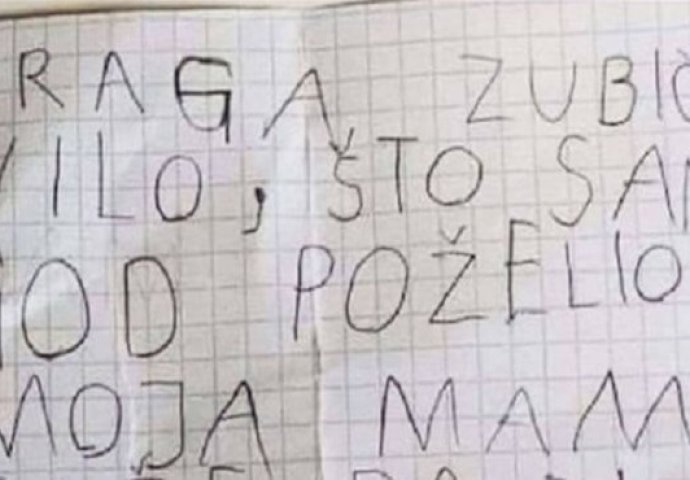 RAGA ZUBIĆ
VILO, ŠTO SAM
GOD POŽELIO
MOJA MAM